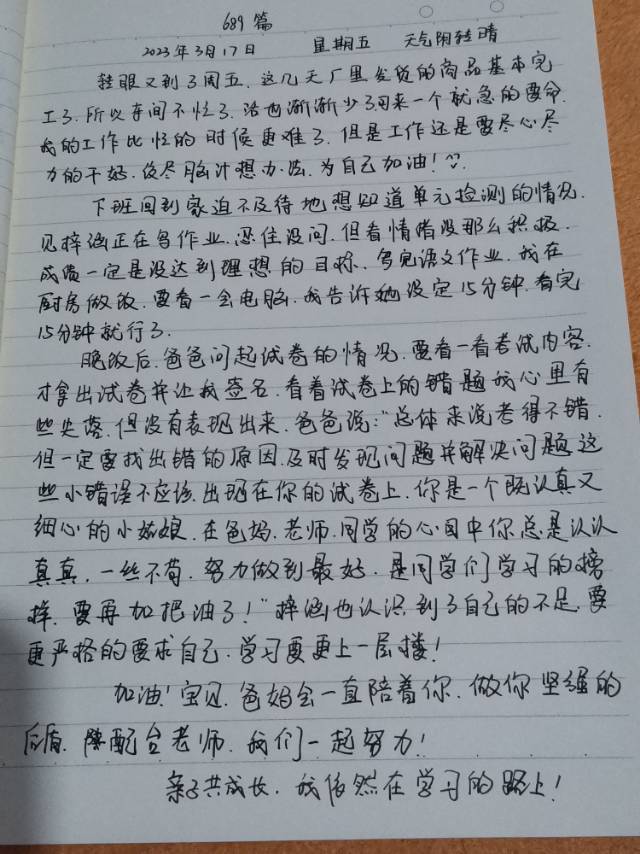 689篇
2023年3月17日 星期五 天气阴转晴
转眼又到了周五,这几天厂里发货的商品基本完
工了.所以车间不忙了.活也渐渐少了.来一个就急的要命.
我的工作比忙的时候更难了.但是工作还是要尽心尽
力的干好.绞尽脑汁想办法.为自己加油!
下班回到家迫不及待地想知道单元检测的情况.
见梓涵正在写作业.忍住没问.但看情绪没那么积极.
成绩一定是没达到理想的目标.写完语文作业.我在
厨房做饭.要看一会电脑.我告诉她设定15分钟.看完
15分钟就行了.
晚饭后.爸爸问起试卷的情况.要看一看考试内容.
才拿出试卷并让我签名.看着试卷上的错题我心里有
些失落.但没有表现出来.爸爸说:"总体来说考得不错.
但一定要找出错的原因.及时发现问题并解决问题.这
些小错误不应该出现在你的试卷上.你是一个既认真又
细心的小姑娘.在爸妈.老师.同学的心目中你总是认认
真真.一丝不苟.努力做到最好.是同学们学习的榜
样.要再加把油了!"梓涵也认识到了自己的不足.要
更严格的要求自己.学习要更上一层楼!
加油!宝贝.爸妈会一直陪着你.做你坚强的
后盾.配合老师.我们一起努力!
亲子共成长.我依然在学习的路上!